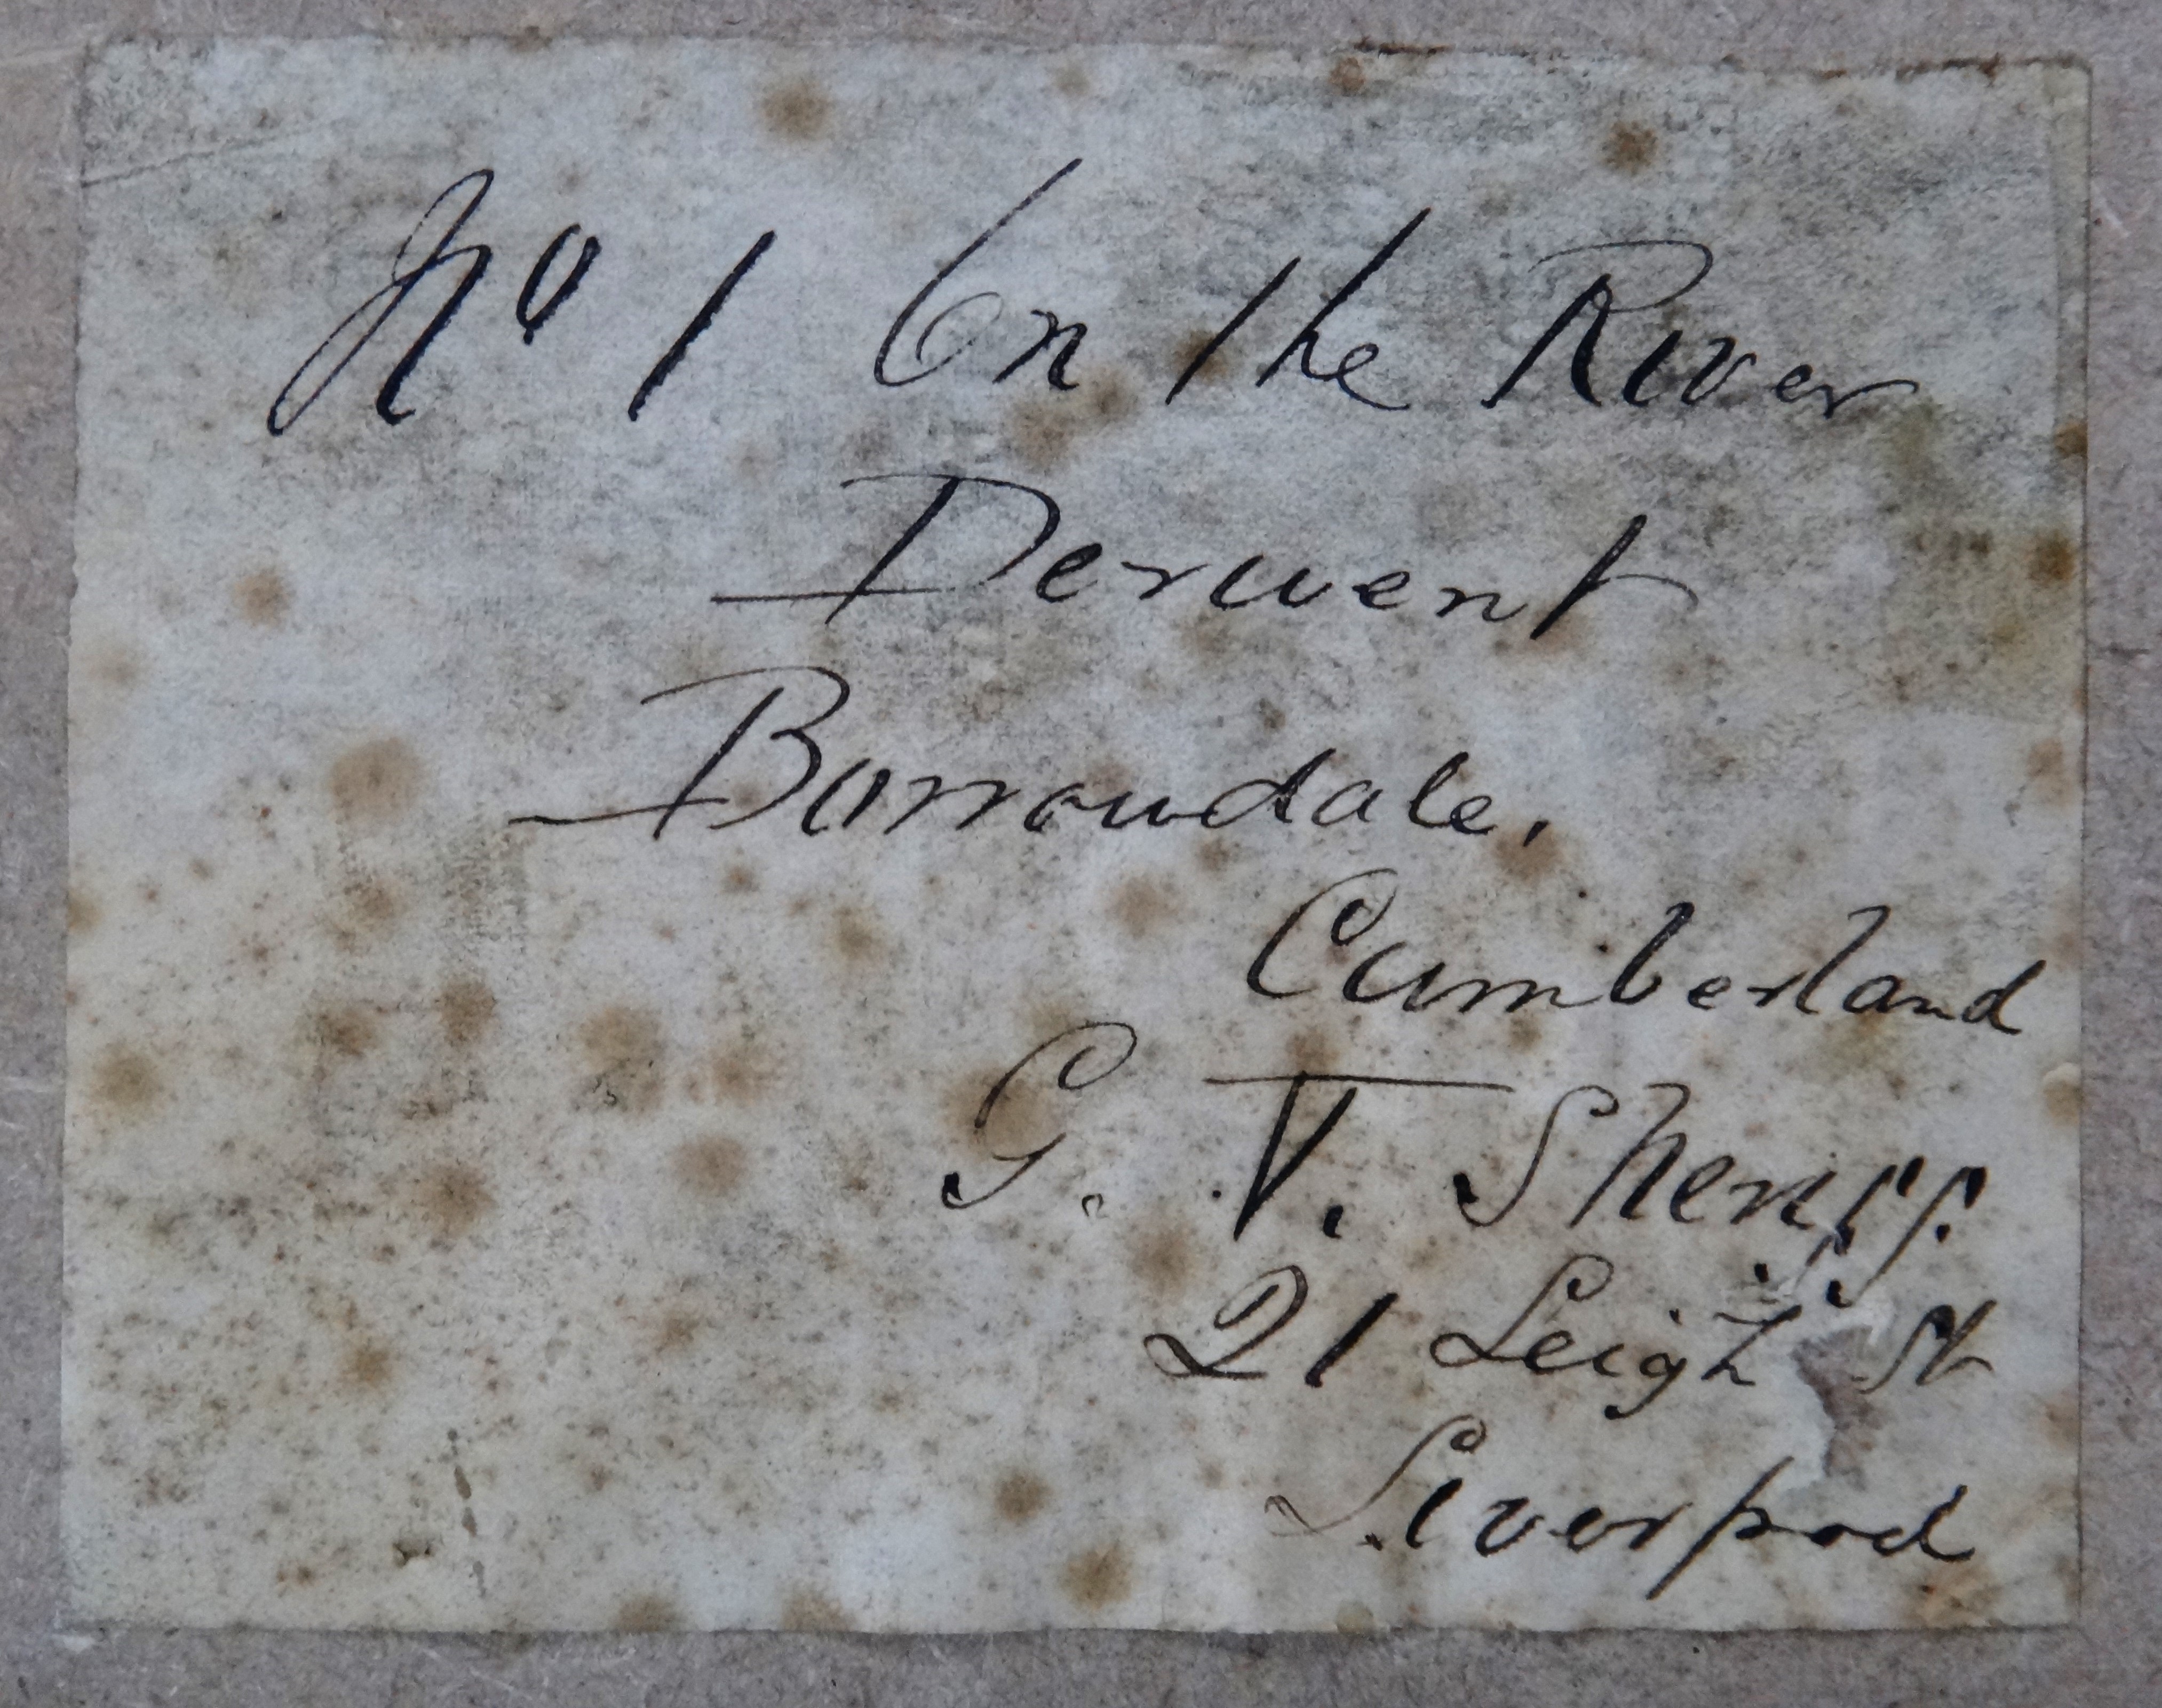 No 1 On the River
Derwent
Borrowdale.
Cumberland
G. T. Sheriff.
21 Leigh St
Liverpool